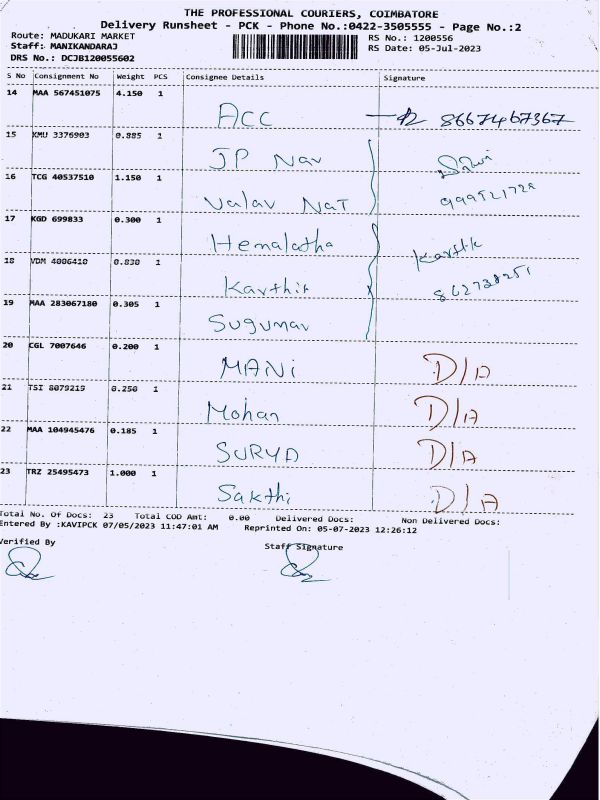 THE PROFESSIONAL COURIERS, COIMBATORE
Delivery Runsheet - PCK - Phone No.:0422-3505555 - Page No.:2
Route: MADUKARI MARKET RS No.: 1200556
Staff: MANIKANDARAJ RS Date: 05-Jul-2023
DRS No.: DCJB120055602
S No Consignment No Weight PCS Consignee Details Signature
14 MAA 567451075 4.150 1 ACC 8667467367
15 KMU 3376903 0.885 1 JP Nav
16 TCG 40537510 1.150 1 Valav NaT
17 KGD 699833 0.300 1 Hemalatha Karthik
18 VDM 4006410 0.830 1 Karthik
19 MAA 283067180 0.305 1 Sugumar
20 CGL 7007646 0.200 1 MANi D/A
21 TSI 8079219 0.250 1 Mohan D/A
22 MAA 104945476 0.185 1 SURYA D/A
23 TRZ 25495473 1.000 1 Sakthi D/A
Total No. Of Docs: 23 Total COD Amt: 0.00 Delivered Docs: Non Delivered Docs:
Entered By :KAVIPCK 07/05/2023 11:47:01 AM Reprinted On: 05-07-2023 12:26:12
Verified By Staff Signature